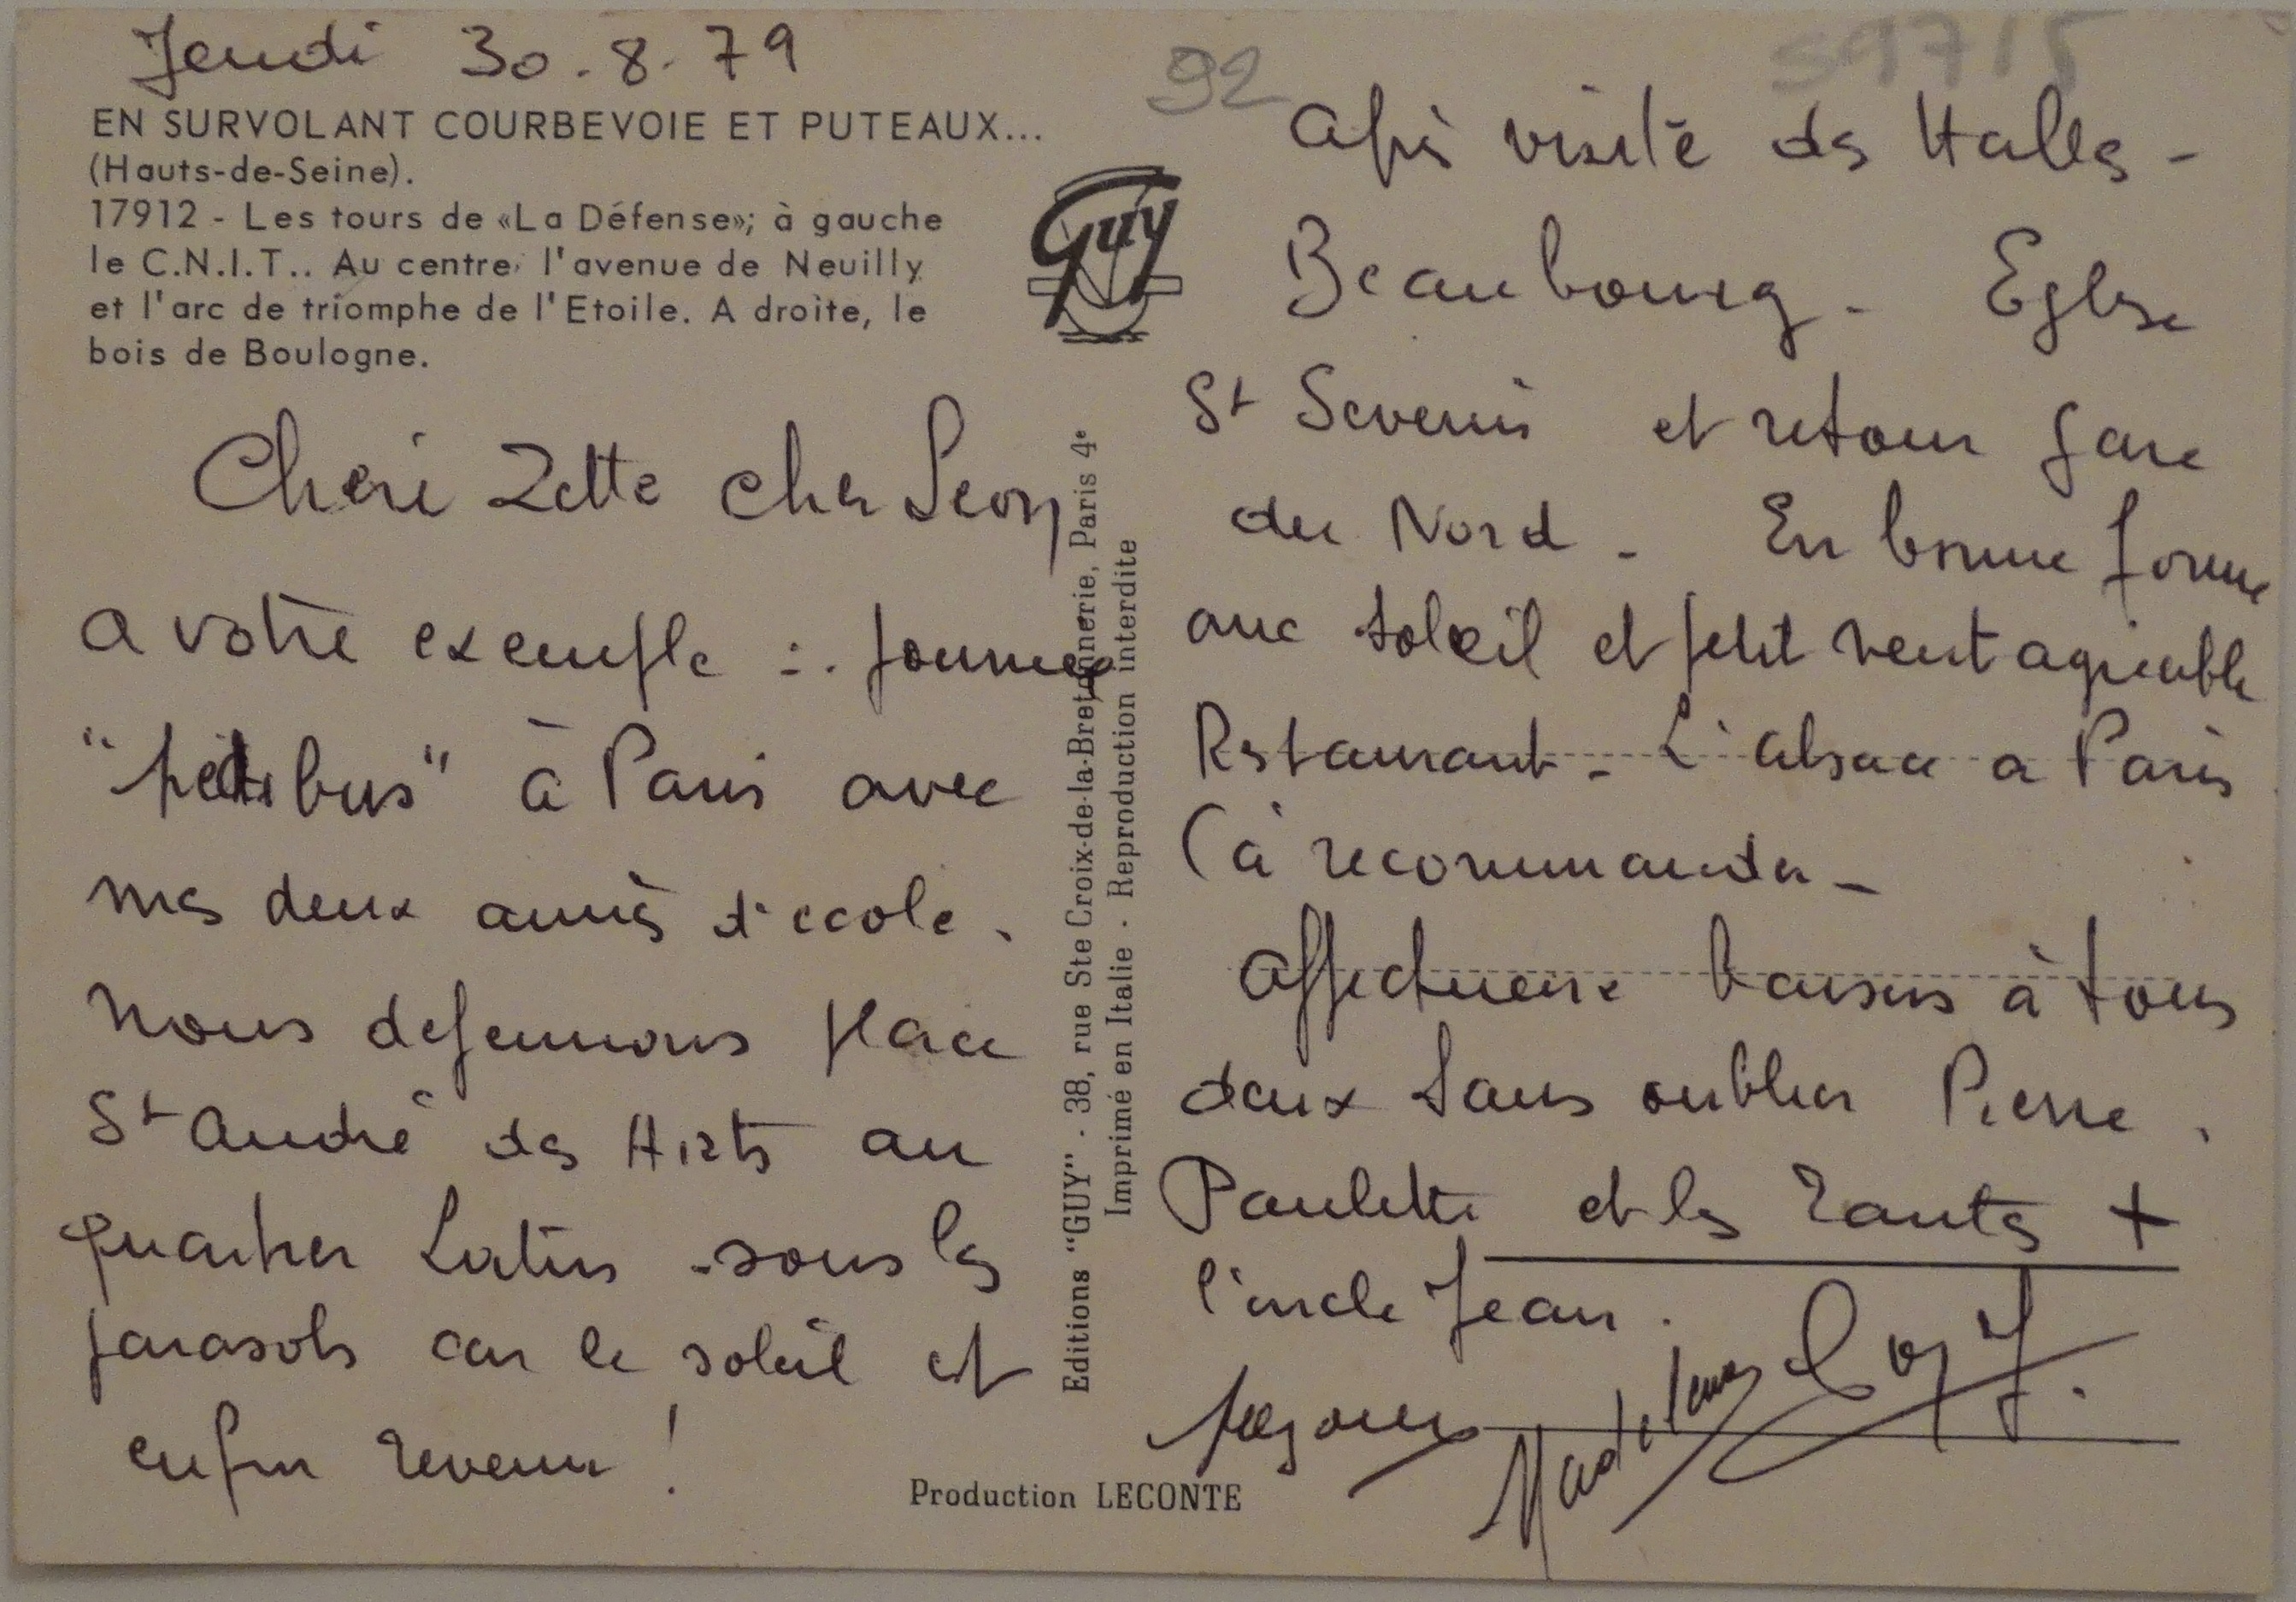 Jeudi 30.8.79
EN SURVOLANT COURBEVOIE ET PUTEAUX...
(Hauts-de-Seine).
17912 - Les tours de «La Défense»; à gauche
le C.N.I.T.. Au centre, l'avenue de Neuilly
et l'arc de triomphe de l'Etoile. A droite, le
bois de Boulogne.
Guy
Cheri Zette cher Leon
a votre exemple : journee
"pedibus" à Paris avec
mes deux amies d'ecole.
Nous dejeunons place
St André des Arts au
quartier Latin - sous les
parasols car le soleil est
enfin revenu !
Editions "GUY" . 38, rue Ste Croix-de-la-Bretonnerie, Paris 4e
Imprimé en Italie . Reproduction interdite
Production LECONTE
92
59715
après visite des Halles -
Beaubourg - Eglise
St Severin et retour gare
du Nord - En bonne forme
avec soleil et petit vent agreable
Restaurant - L'alsace a Paris
(à recommander -
Affectueux baisers à tous
deux sans oublier Pierre.
Paulette et les Tantes +
l'oncle Jean.
Madeleine